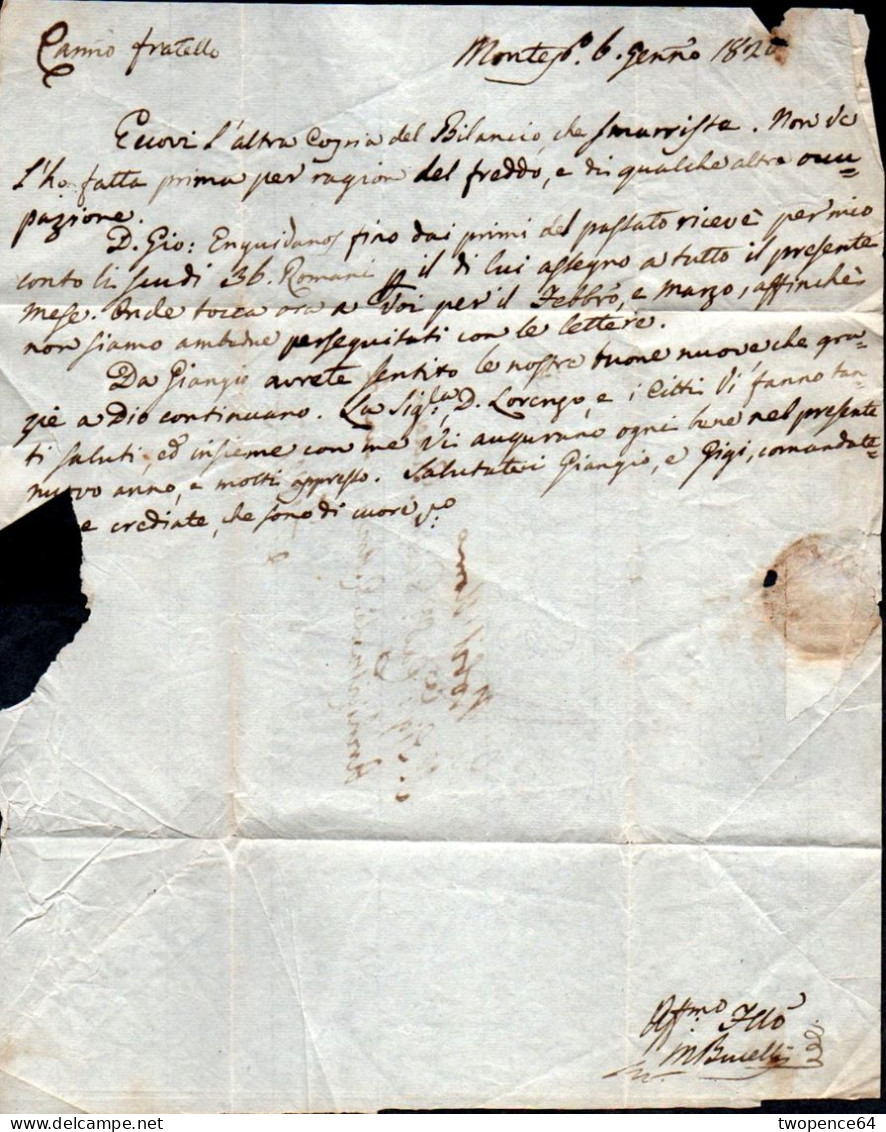 Carmo fratello
Montepo. 6. Gennro 1820
Eccovi l'altra Copria del Bilancio, che smarriste. Non ve
l'ho fatta prima per ragion del freddo, e di qualche altra occu=
pazione.
D. Gio: fino dai primi del passato riceve per mio
conto li scudi 36. Romani p il di lui assegno a tutto il presente
mese. Onde tocca ora a Voi per il Febbro, e Marzo, affinchè
non siamo ambedue perseguitati con le lettere.
Da Giangio avrete sentito le nostre buone nuove che gra=
zie a Dio continuano. La Sigla, D. Lorenzo, e i Citti Vi fanno tan=
ti saluti, ed insieme con me Vi augurano ogni bene nel presente
nuovo anno, e molti appresso. Salutatevi Giangio, e Gigi, comandate=
e crediate, che sono di cuore
Affmo Fello
MBucelli
twopence64